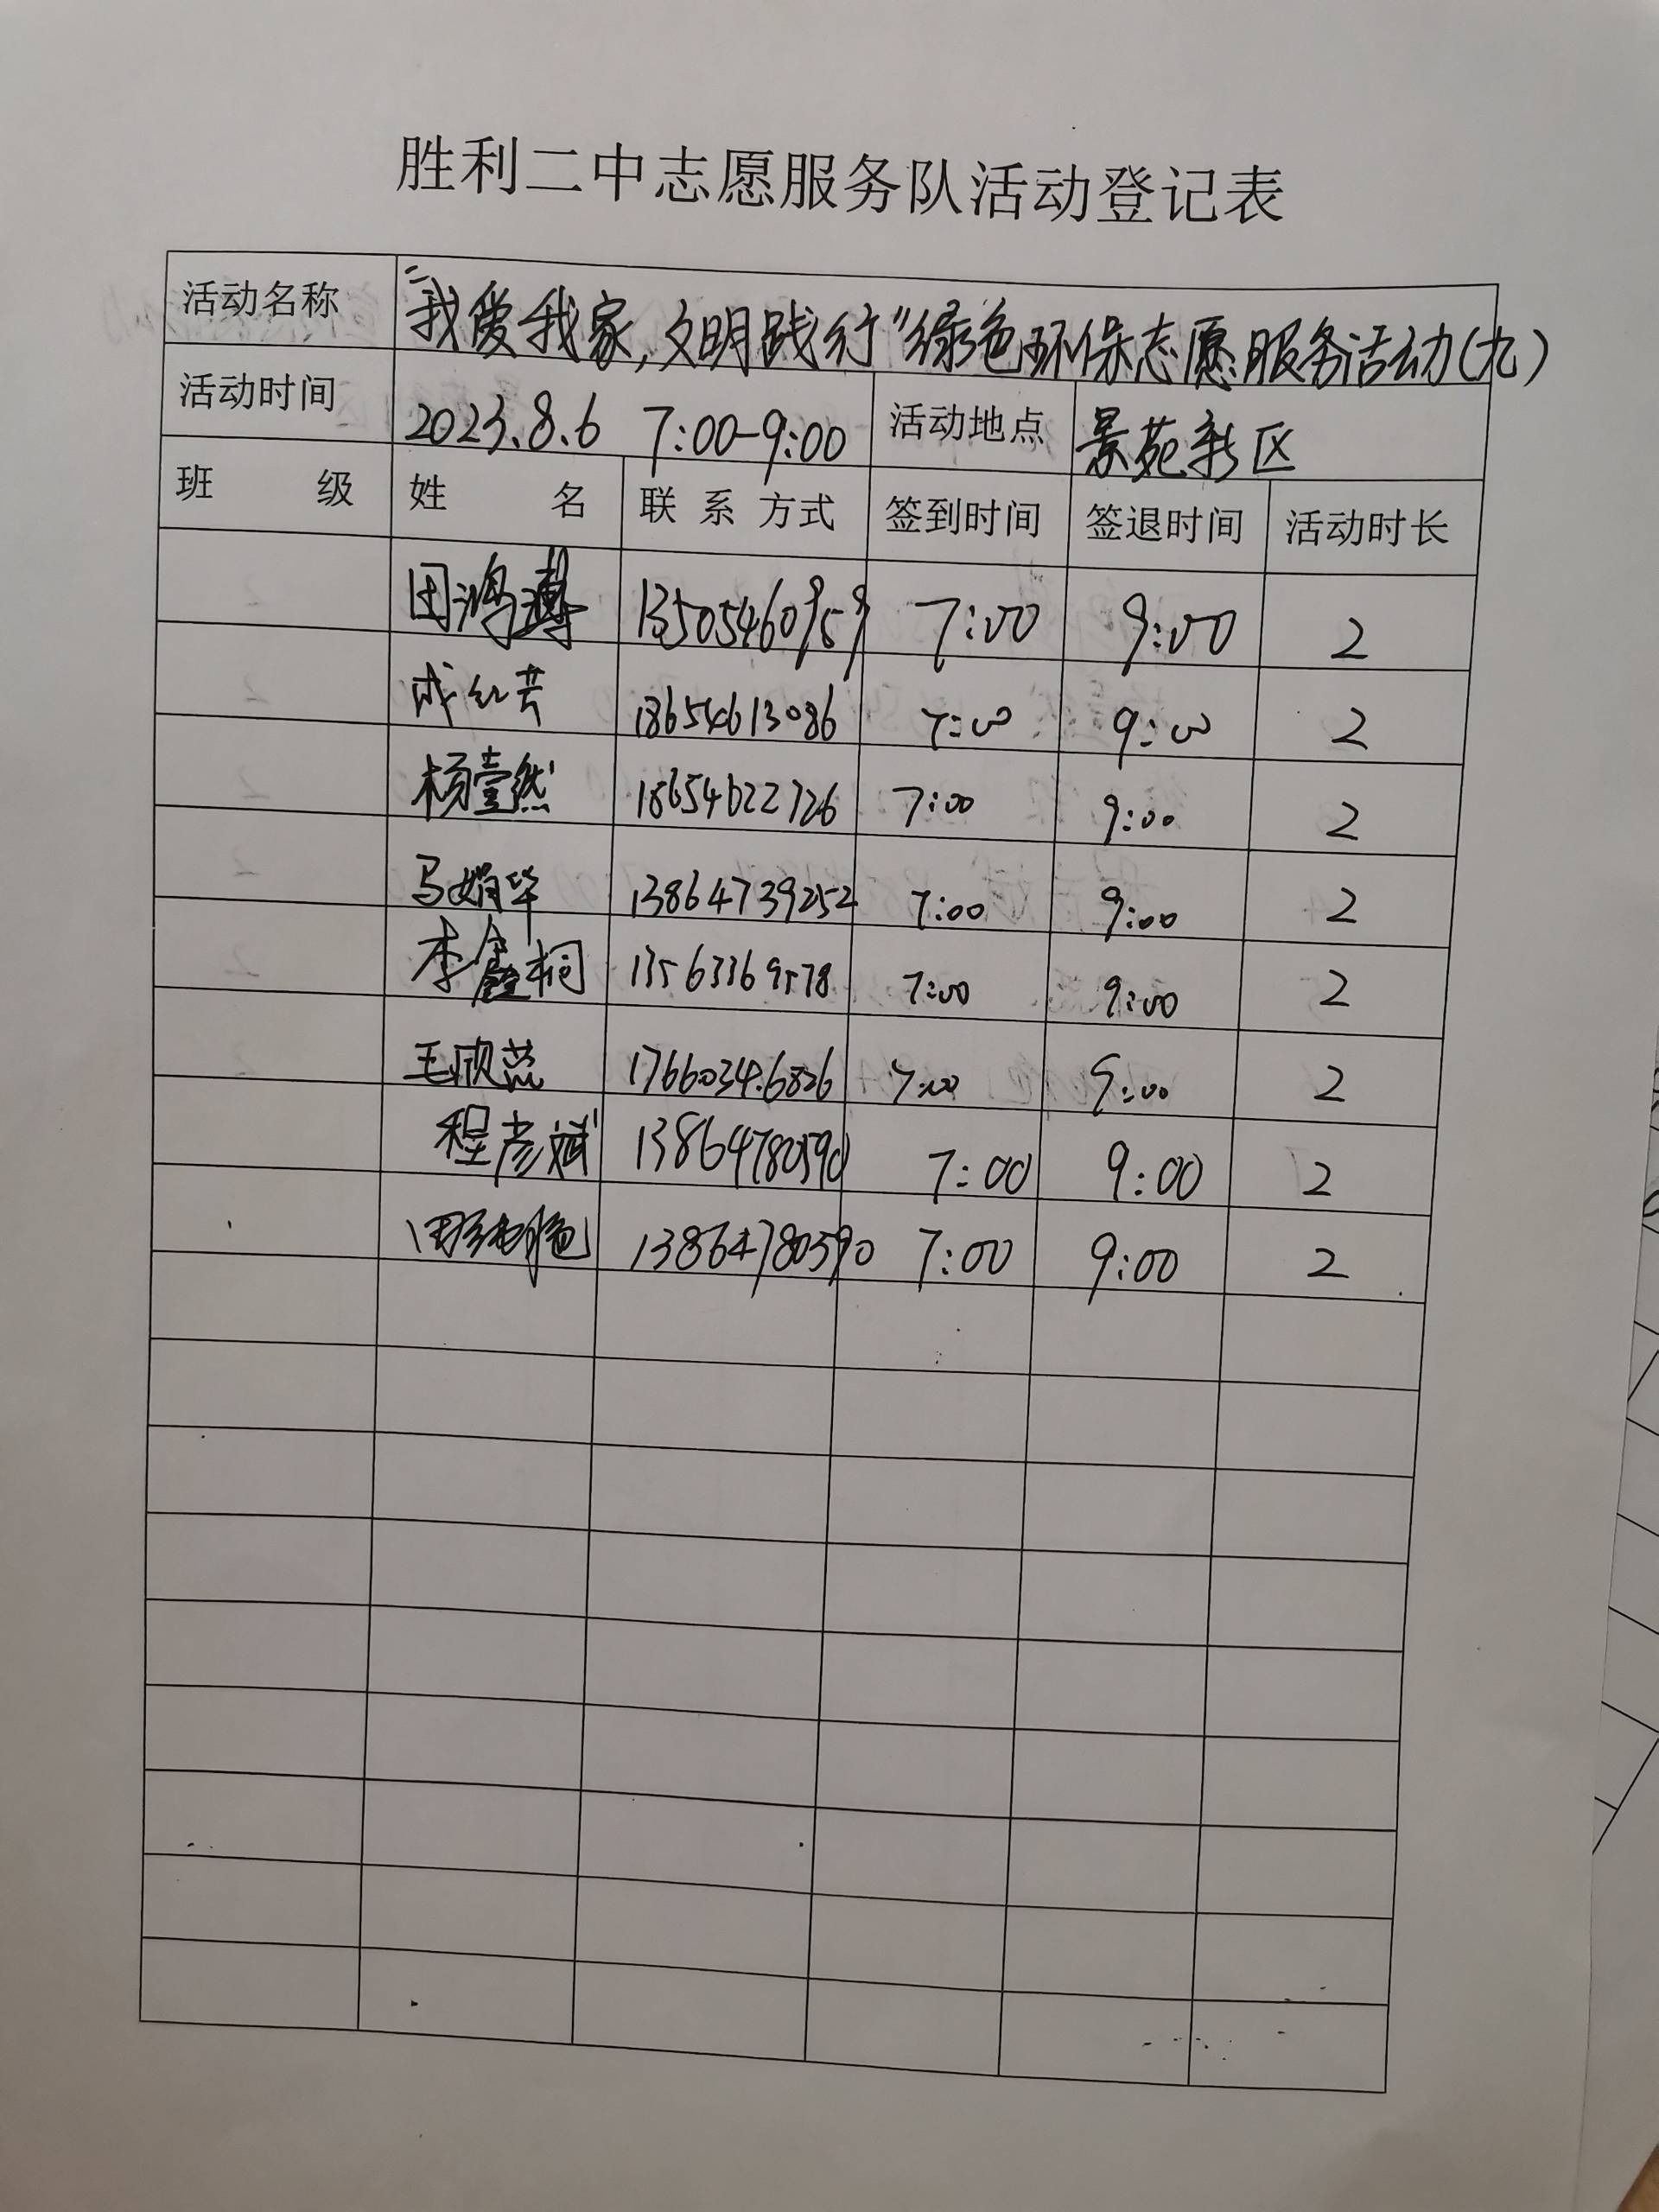 胜利二中志愿服务队活动登记表
活动名称 "我爱我家,文明践行"绿色环保志愿服务活动(九)
活动时间 2023.8.6 7:00-9:00 活动地点 景苑新区
班 级 姓 名 联系方式 签到时间 签退时间 活动时长
田鸿溥 7:00 9:00 2
成红芸 18654613086 7:00 9:00 2
杨壹然 18654622726 7:00 9:00 2
马娟华 13864739252 7:00 9:00 2
李鑫桐 13563369578 7:00 9:00 2
毛欣蕊 17660346826 7:00 9:00 2
程彦斌 13864780590 7:00 9:00 2
13864780590 7:00 9:00 2